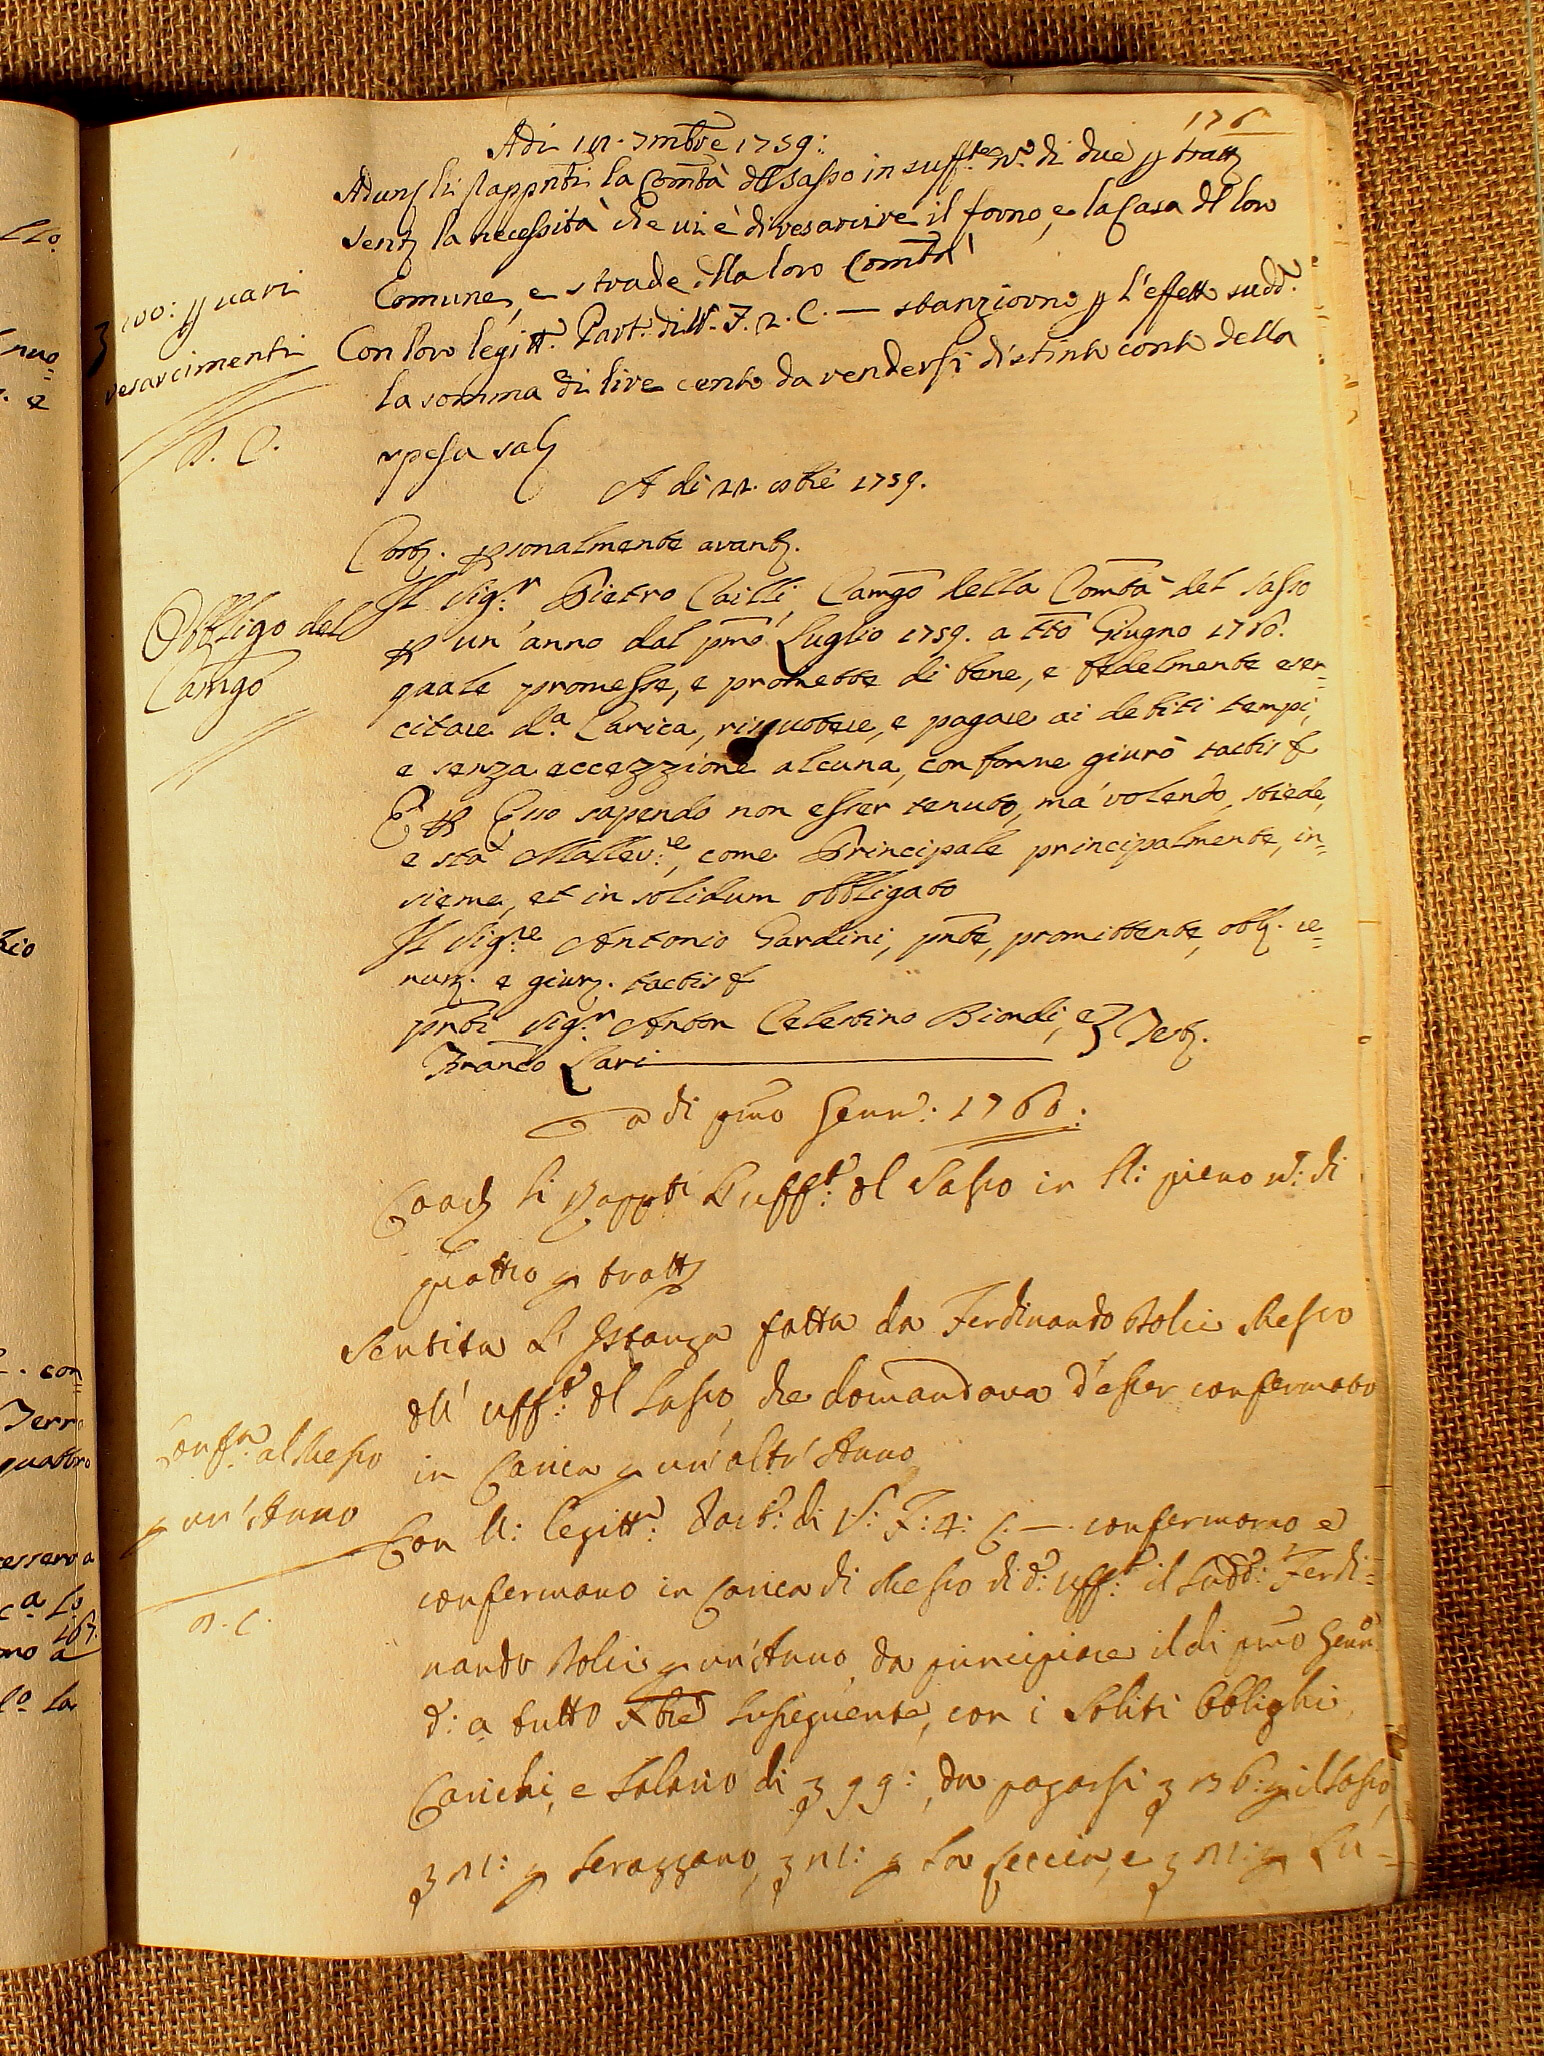 176
Adi 7mbre 1759:
Adunti li Rapprnti la Comtà del Sasso in suffte No. di due p tratt
Sentita la necessità che vi è di resarcire il forno, e la Casa del loro
Comune, e strade della loro Comtà
100: p vari
resarcimenti
Con loro legitt.o Part.o di V. F. 2. C. — stanziorno p l'effetto sudd.o
la somma di lire cento da rendersi distinto conto della
spesa
A. C.
A di 22. 8bre 1759.
Cost. personalmente avanti.
Obbligo del
Camgo
Il Sig.r Pietro Cailli, Camgo della Comtà del Sasso
p un' anno dal pmo Luglio 1759. a tto Giugno 1760.
quale promesse, e promette di bene, e fedelmente eser=
citare d.a Carica, risquotere, e pagare ai debiti tempi,
e senza eccezzione alcuna, conforme giurò tactis &
E p Esso sapendo non esser tenuto, mà volendo, stiede,
e stà Mallev:re, come Principale principalmente, in=
sieme, et in solidum obbligato
Il Sig.re Antonio Gardini, pnte, promittente, obb. re=
nun. e giur. tactis &
pnti Sig.r Anton Celestino Biondi, e } Test.
Franco Lari
a di pmo Genn.o: 1760:
Coad li Rappti L'uff.o: del Sasso in Il: pieno n.o: di
quattro p tratt
Sentita l'Istanza fatta da Ferdinando Messo
dell' uff.o: del Sasso, che domandava d'esser confermato
in Carica p un' altr' Anno
Conf.a: al Messo
p un' Anno
Con Il: legitt.o: Part.o: di V: F: 4: C: —. confermorno e
confermano in Carica di Messo di d.o: uff.o: il sudd.o: Ferdi=
nando p un' Anno da principiare il dì pmo Genn.o
A. C.
d.o: a tutto Xbre susseguente, con i soliti Obblighi,
Carichi, e Salario di 99:, da pagarsi 36: p il Sasso,
21: p Serazzano, 21: p La Leccia, e 21: p Lu-